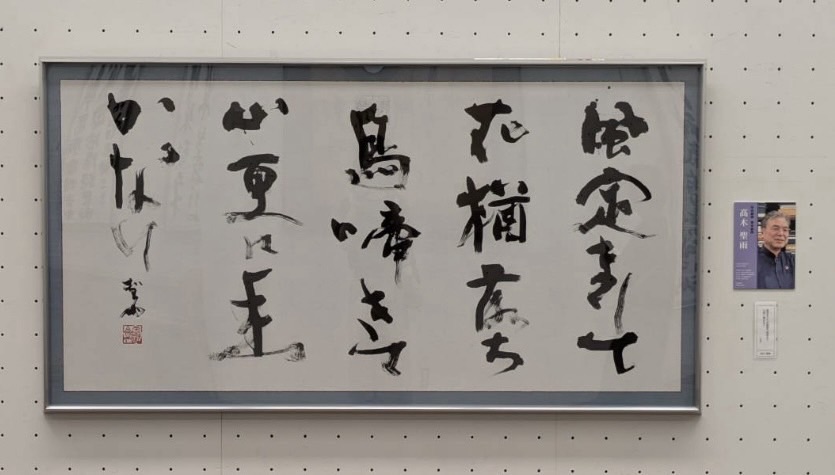 風定まりて
花猶落ち
鳥啼きて
山更に幽
かなり
聖雨
髙木聖雨